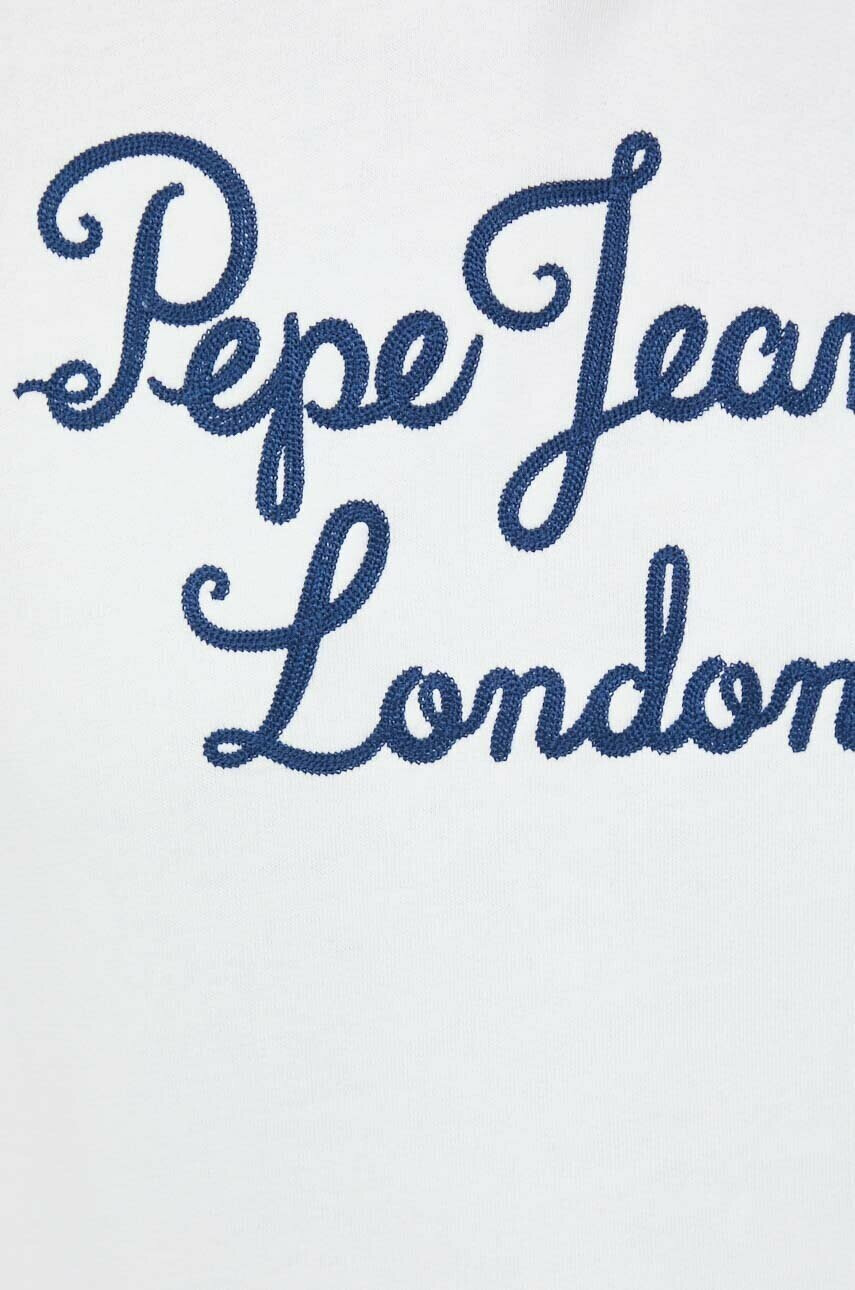 Pepe Jean
London